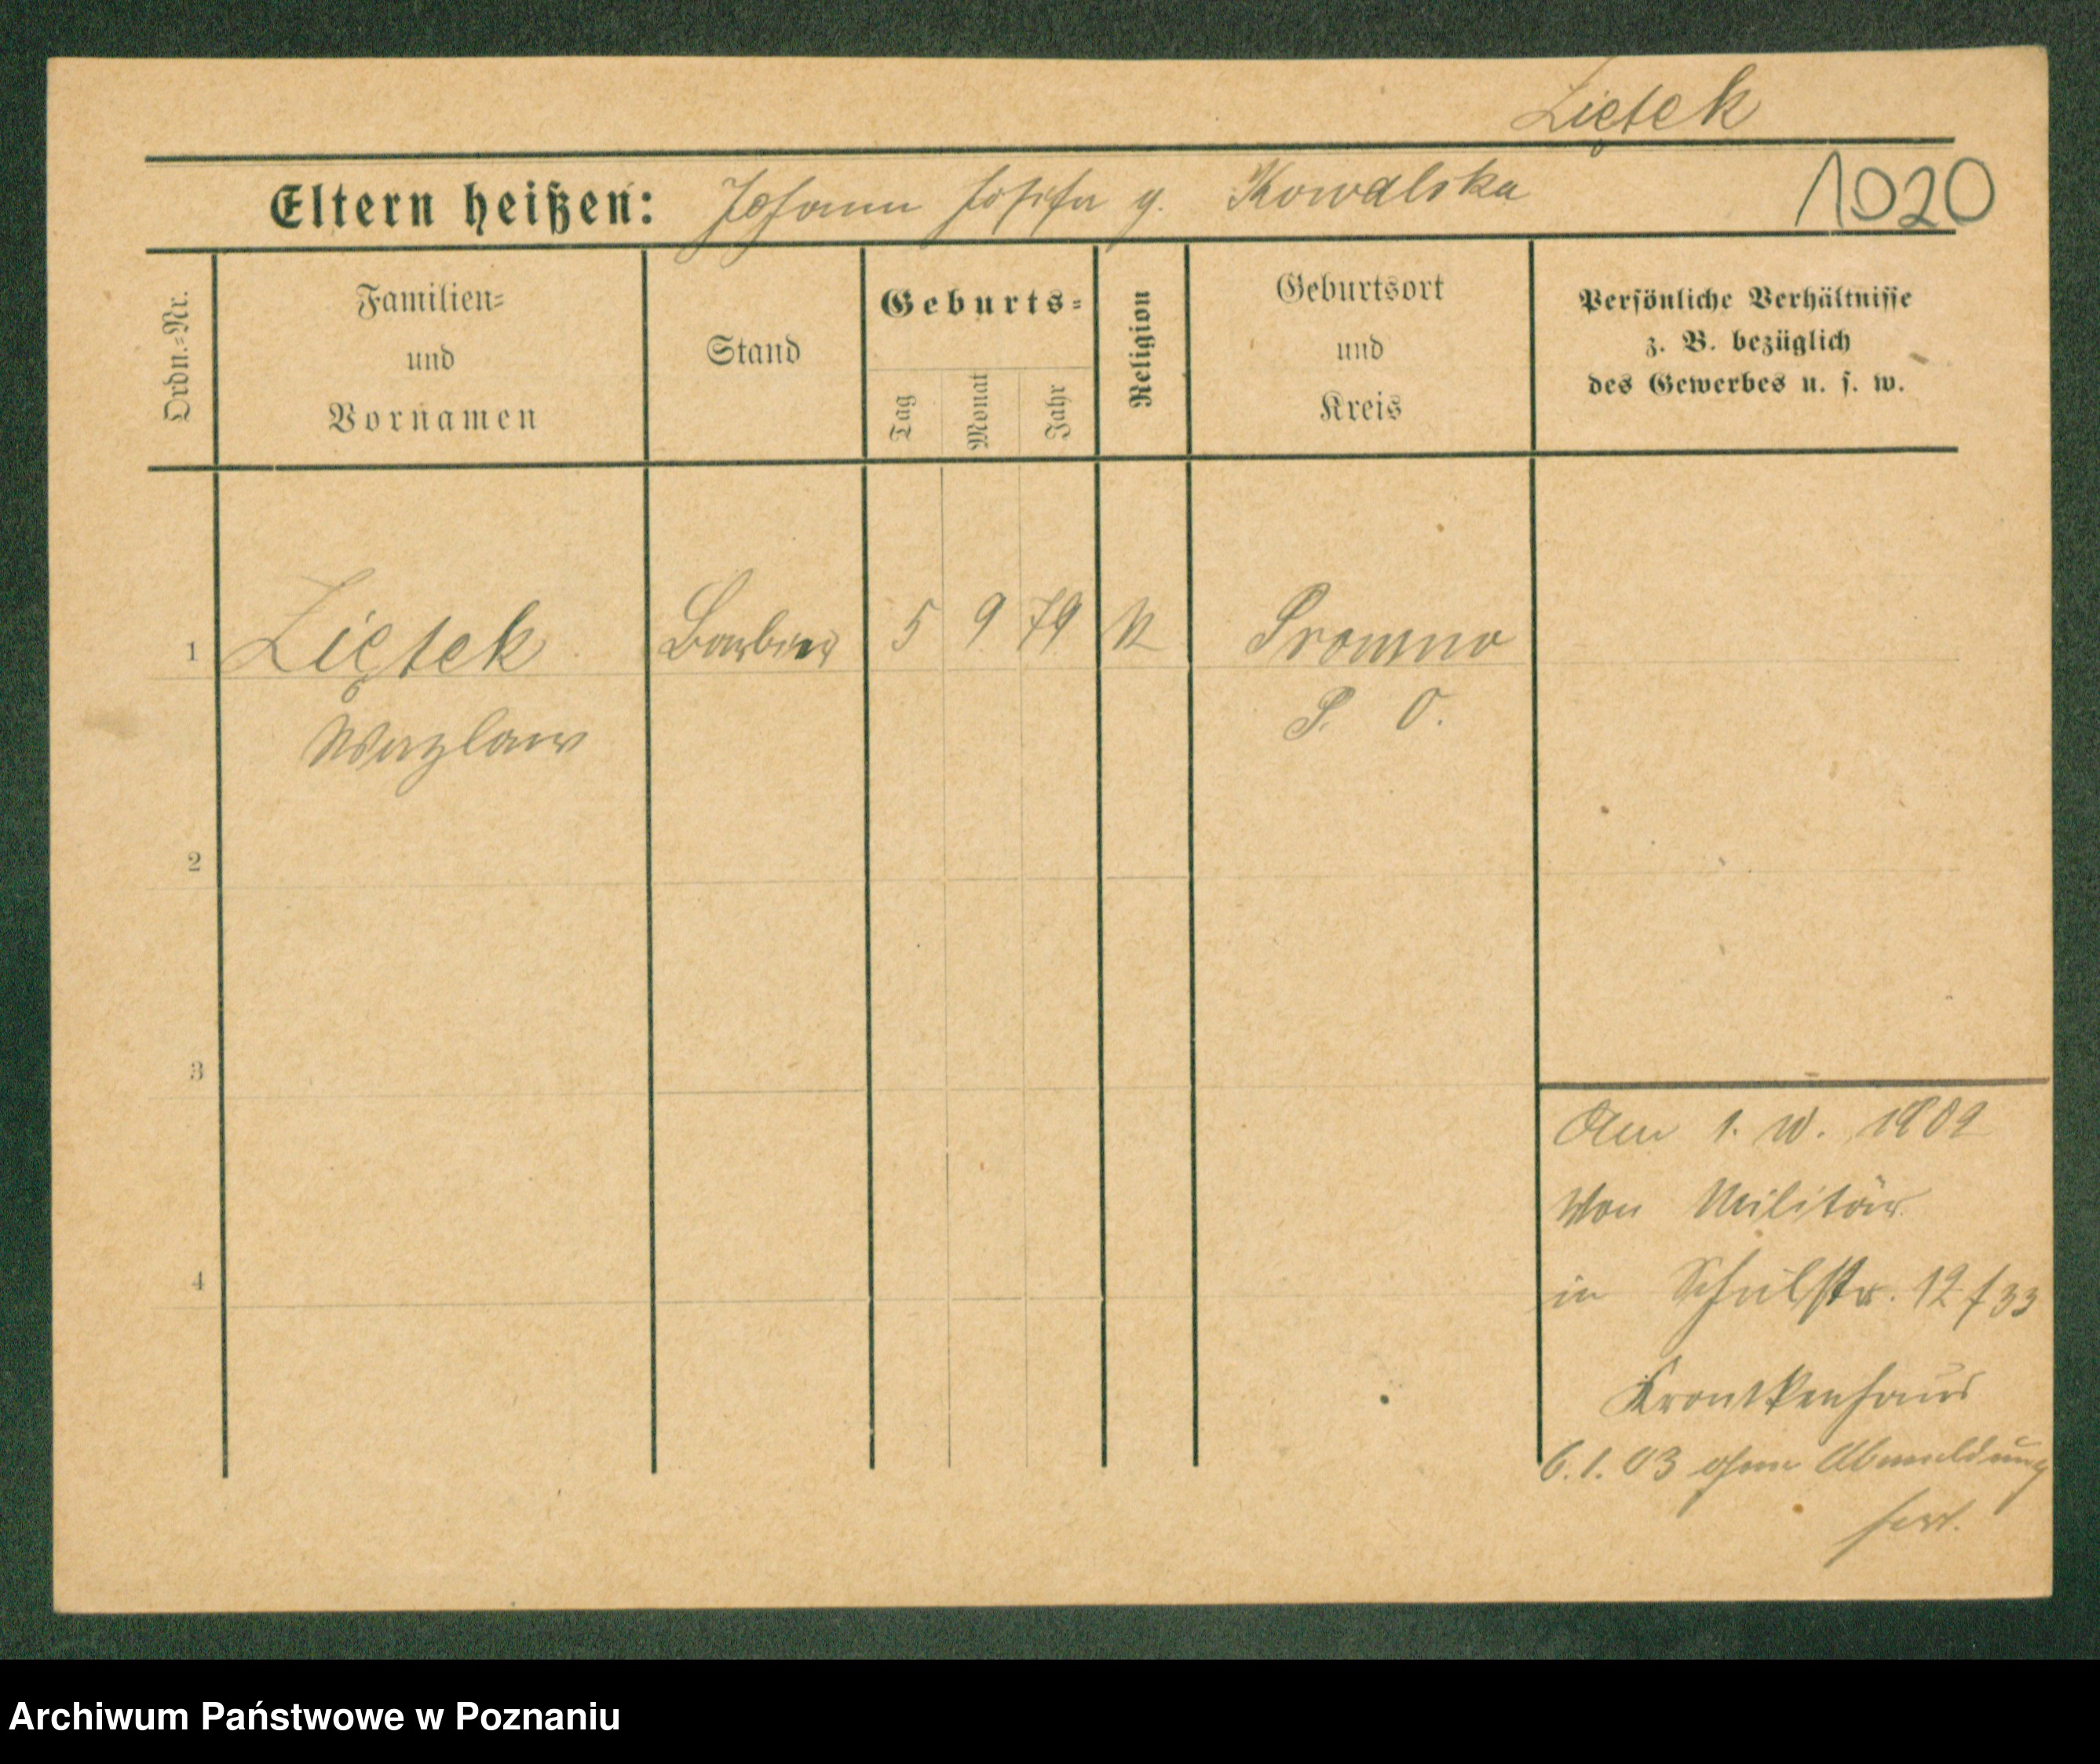 Ziętek
Eltern heißen: Johann Josefa g. Kowalska
1020
Ordn.-Nr.
Familien-
und
Vornamen
Stand
Geburts-
Tag
Monat
Jahr
Religion
Geburtsort
und
Kreis
Persönliche Verhältnisse
z. B. bezüglich
des Gewerbes u. s. w.
1 Ziętek Barbier 5 9 79 K Promno
Wazlaw P. O.
2
3
4
Am 1. 10. 1902
Von Militär
in Schulstr. 12 / 33
Krankenhaus
6. 1. 03 ohne Abmeldung
fort.
Archiwum Państwowe w Poznaniu